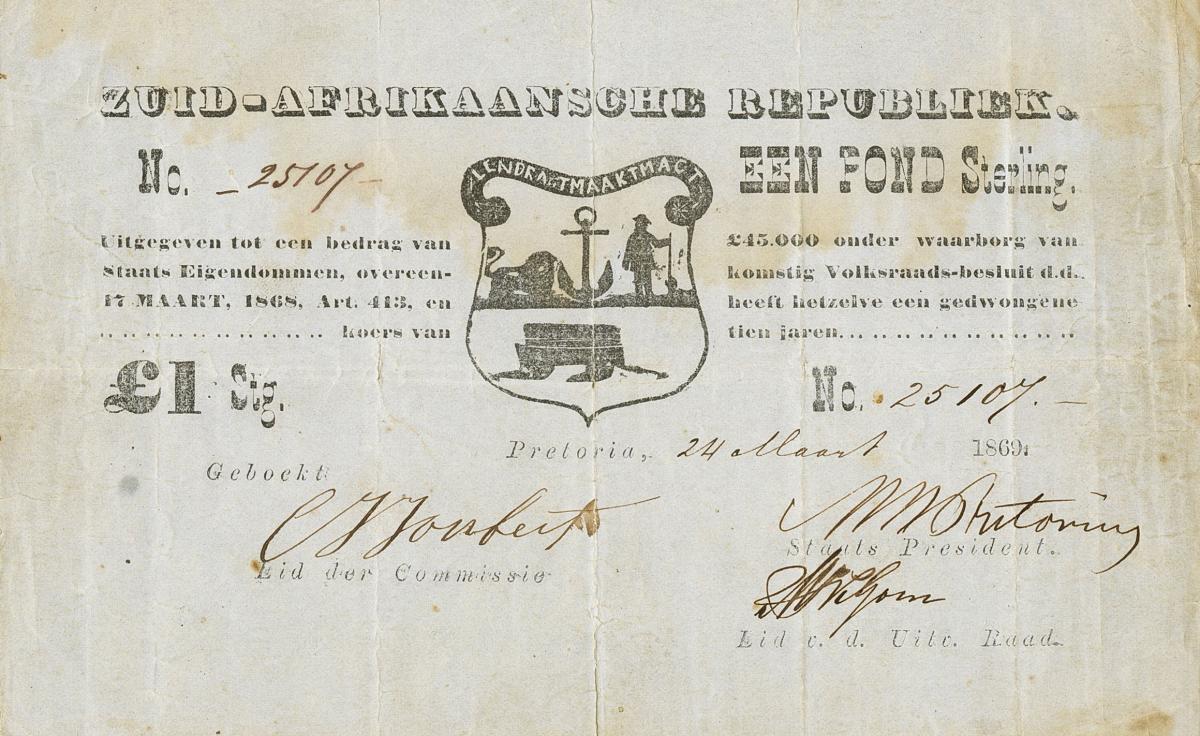 ZUID-AFRIKAANSCHE REPUBLIEK.
No. 25107
EENDRAGTMAAKTMAGT
EEN POND Sterling.
Uitgegeven tot een bedrag van £45.000 onder waarborg van
Staats Eigendommen, overeen- komstig Volksraads-besluit d.d.
17 MAART, 1868, Art. 413, en heeft hetzelve een gedwongene
koers van tien jaren
£1 Stg.
No. 25107.
Pretoria, 24 Maart 1869.
Geboekt
C J Joubert
M W Pretorius
Lid der Commissie
Staats President.
Lid v. d. Uitv. Raad.